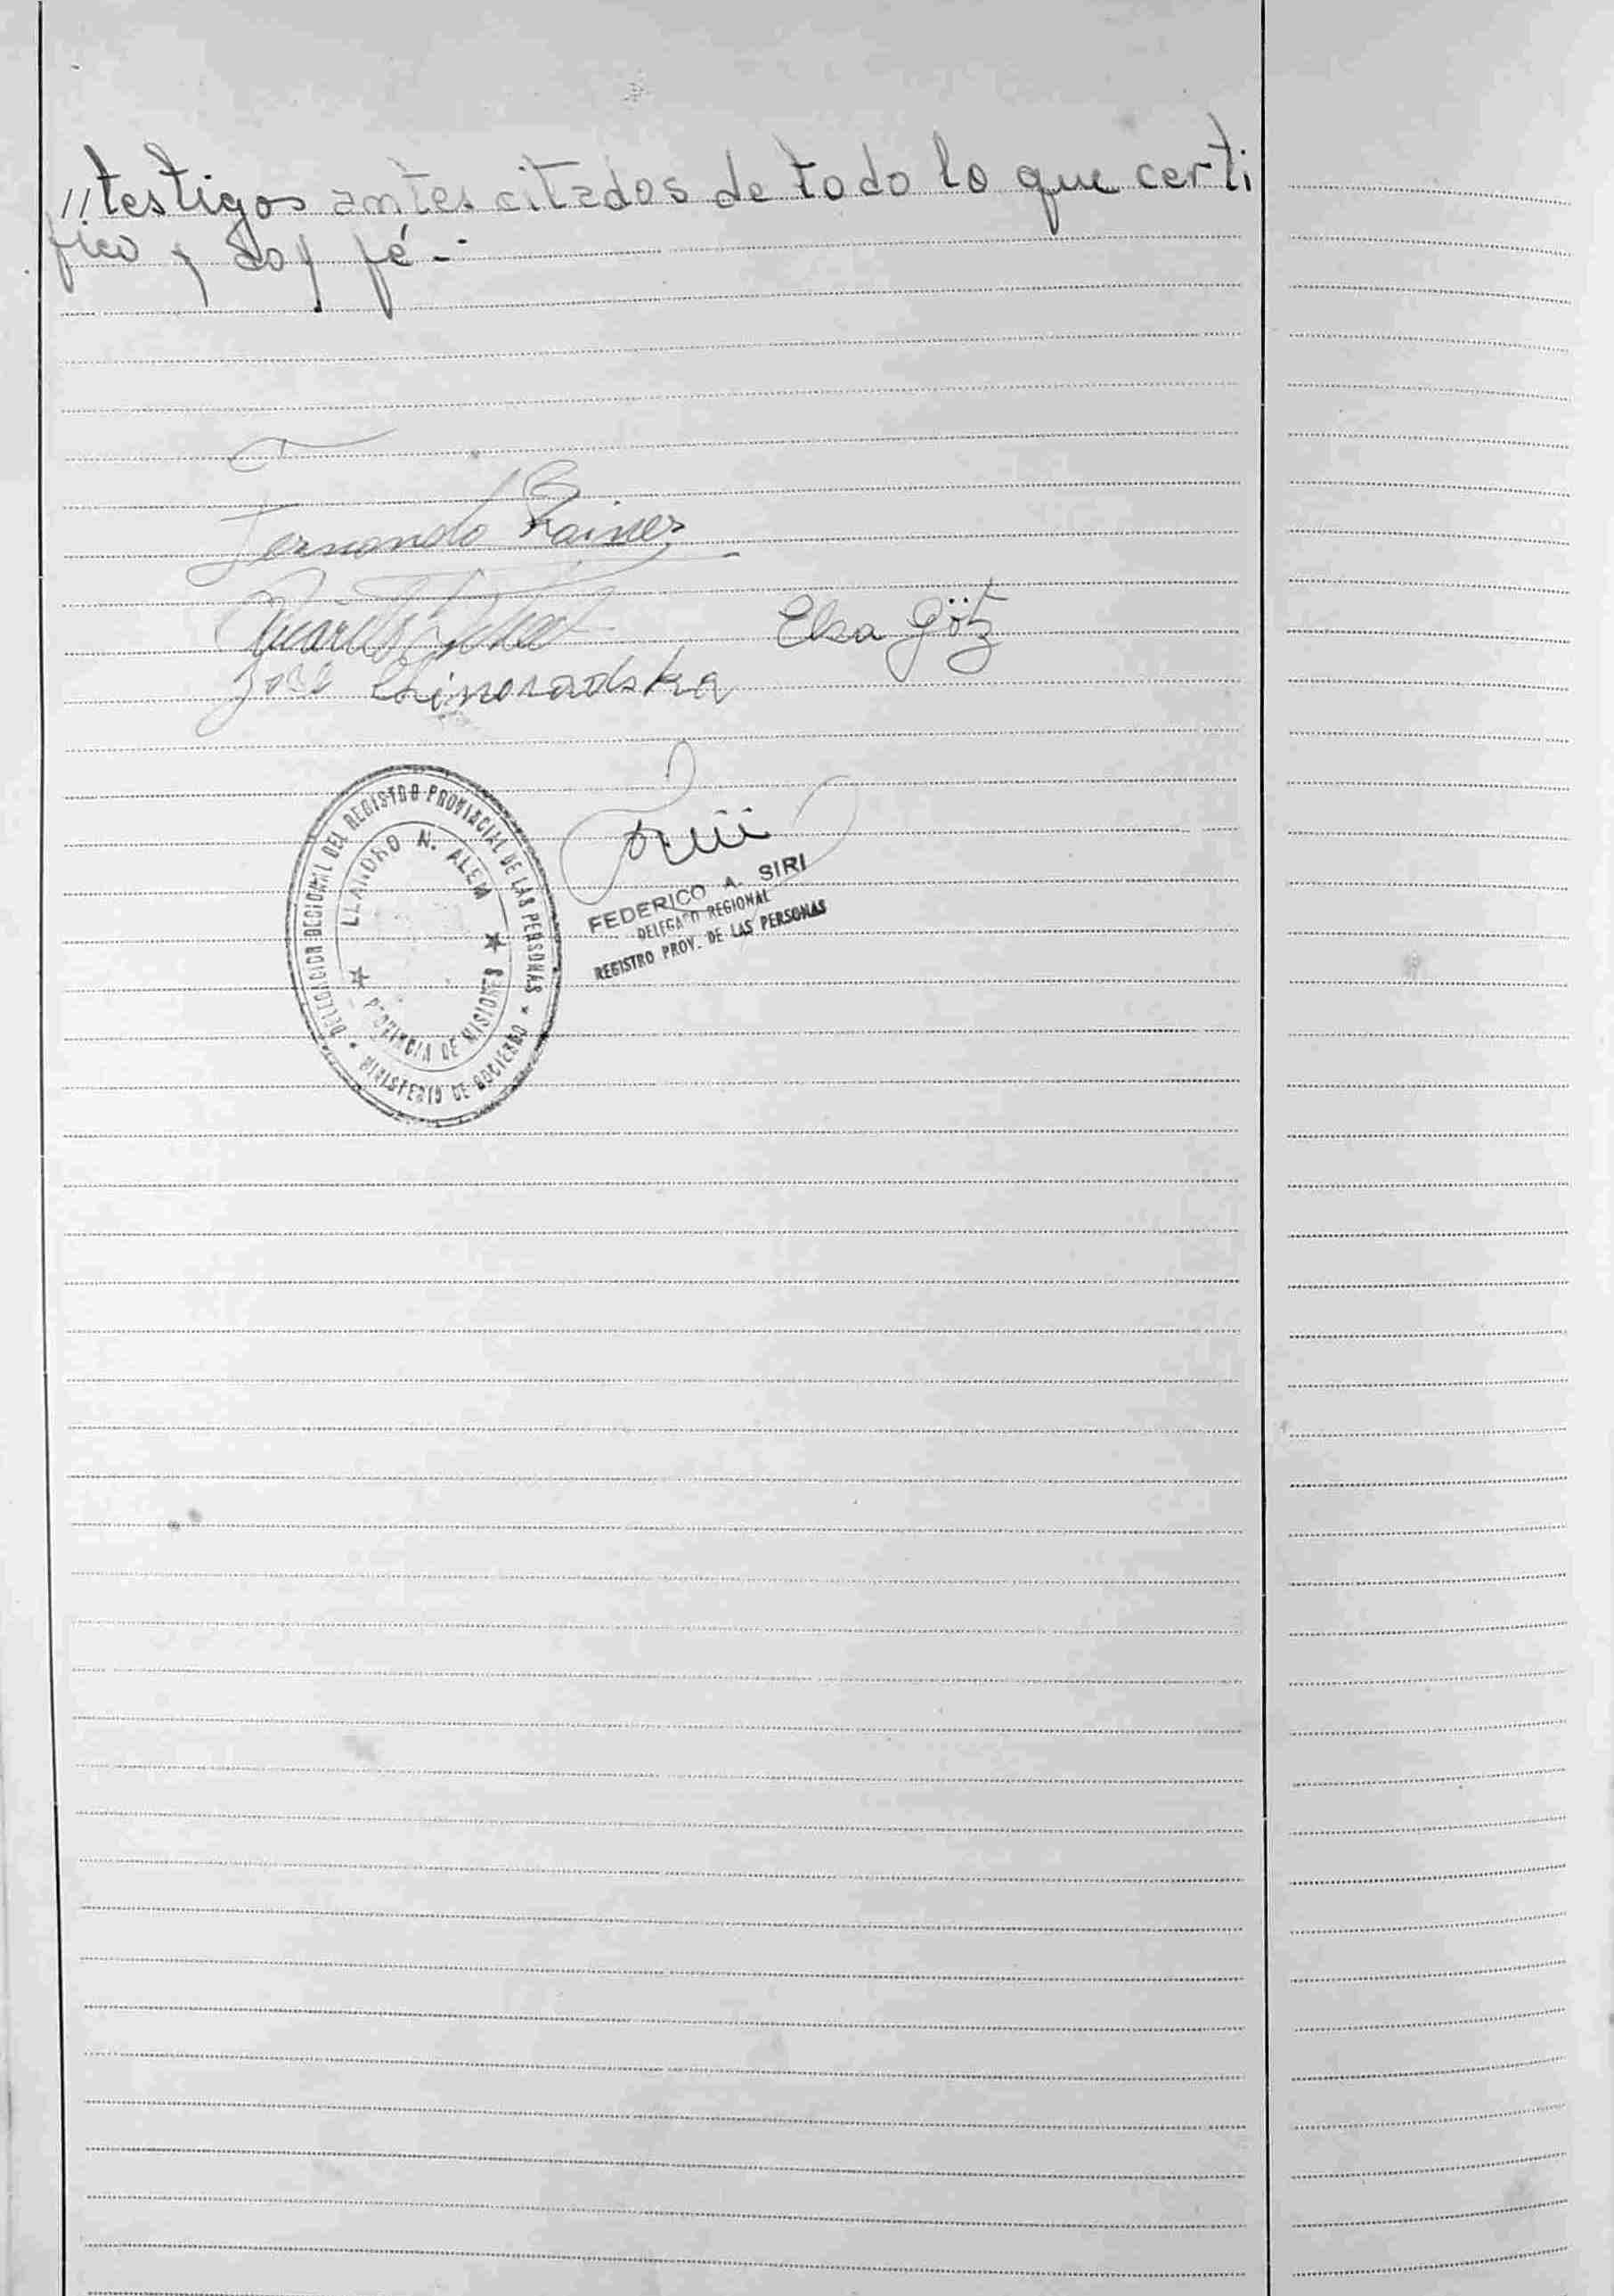 //testigos antes citados de todo lo que certi
fico y doy fé -
Fernando Rainer
Elsa Götz
José
DELEGACION REGIONAL DEL REGISTRO PROVINCIAL DE LAS PERSONAS * MINISTERIO DE GOBIERNO *
LEANDRO N. ALEM
PROVINCIA DE MISIONES
FEDERICO A. SIRI
DELEGADO REGIONAL
REGISTRO PROV. DE LAS PERSONAS